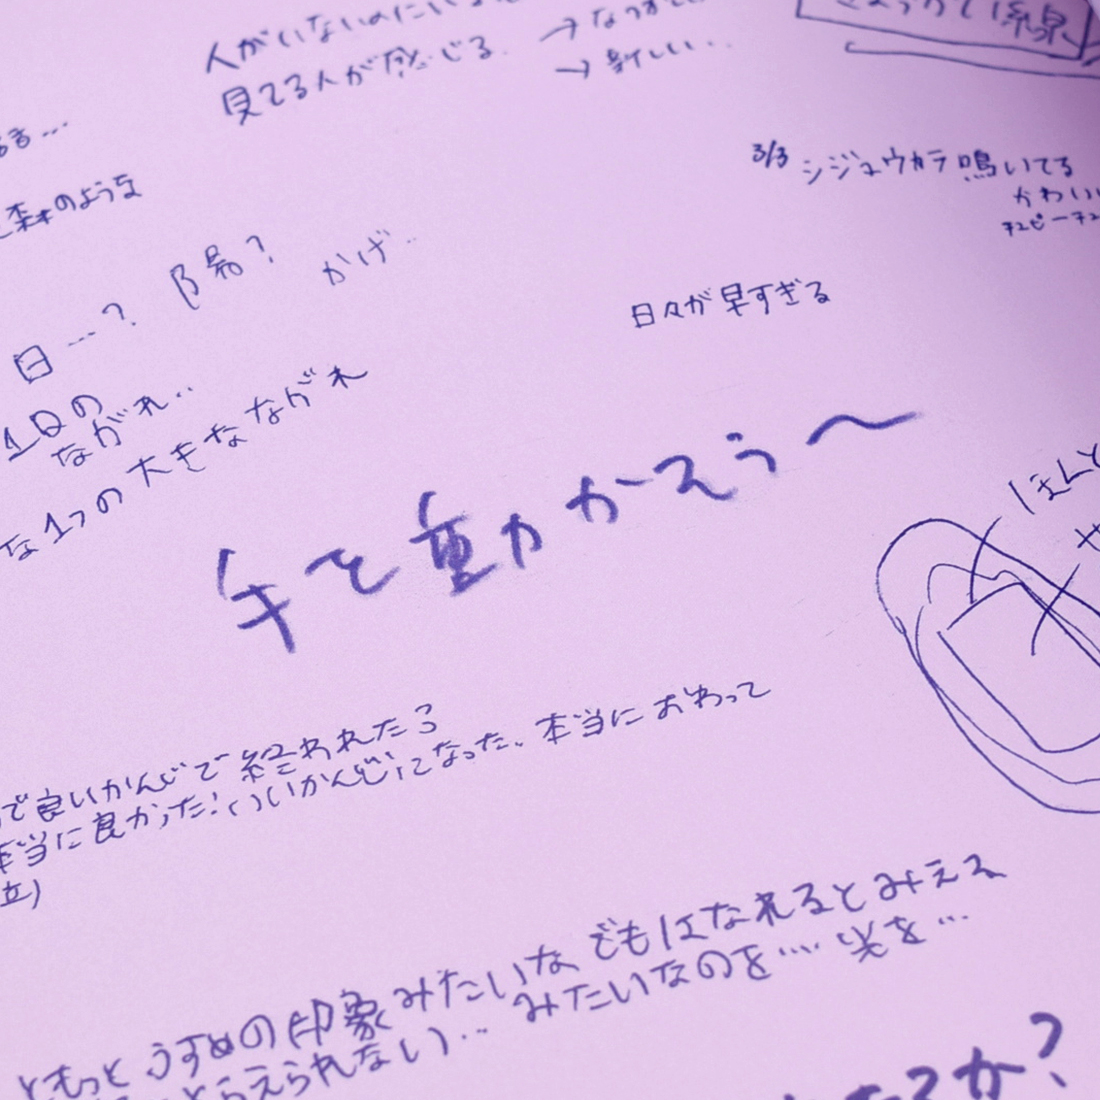 人がいないのにいる
見てる人が感じる
→
→ 新しい..
係泉
3/3 シジュウカラ鳴いてる
かわい
チュピーチュ
森のような
日…? 陽? かげ..
日々が早すぎる
1日の
ながれ..
な1つの大きなながれ
手を動かそう〜
ほんと
で良いかんじで終われたろ
本当に良かった!いいかんじになった、本当におわって
立)
ともっとうすめの印象みたいな でもはなれるとみえる
とらえられない)… みたいなのを…. 光を…
るか?